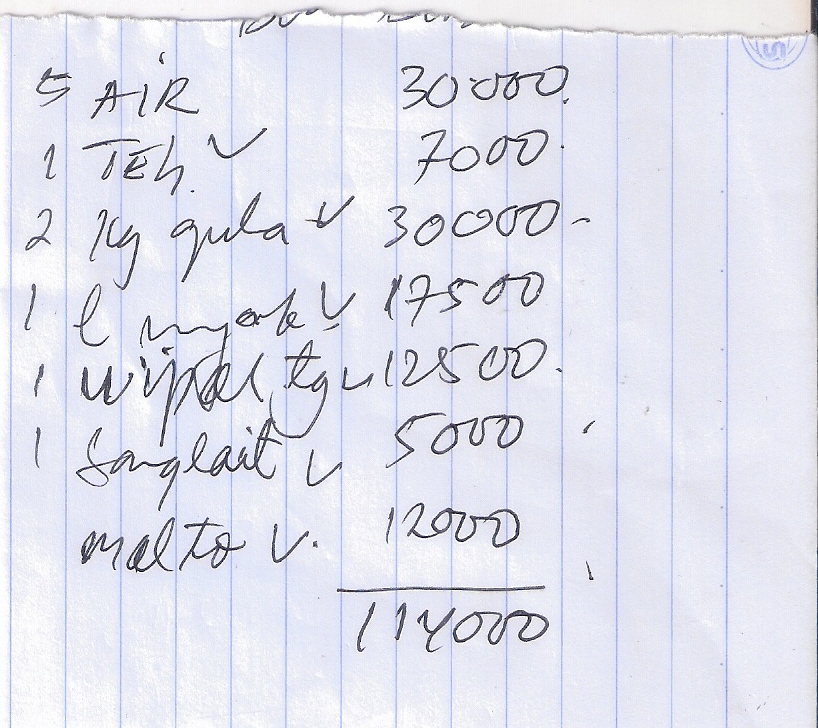 5 AiR 30000.
1 TEh. ✓ 7000.
2 Kg gula ✓ 30000-
1 l myak ✓ 17500
1 wipol tg ✓ 12500.
1 Sunglait ✓ 5000
malto ✓. 12000
114000